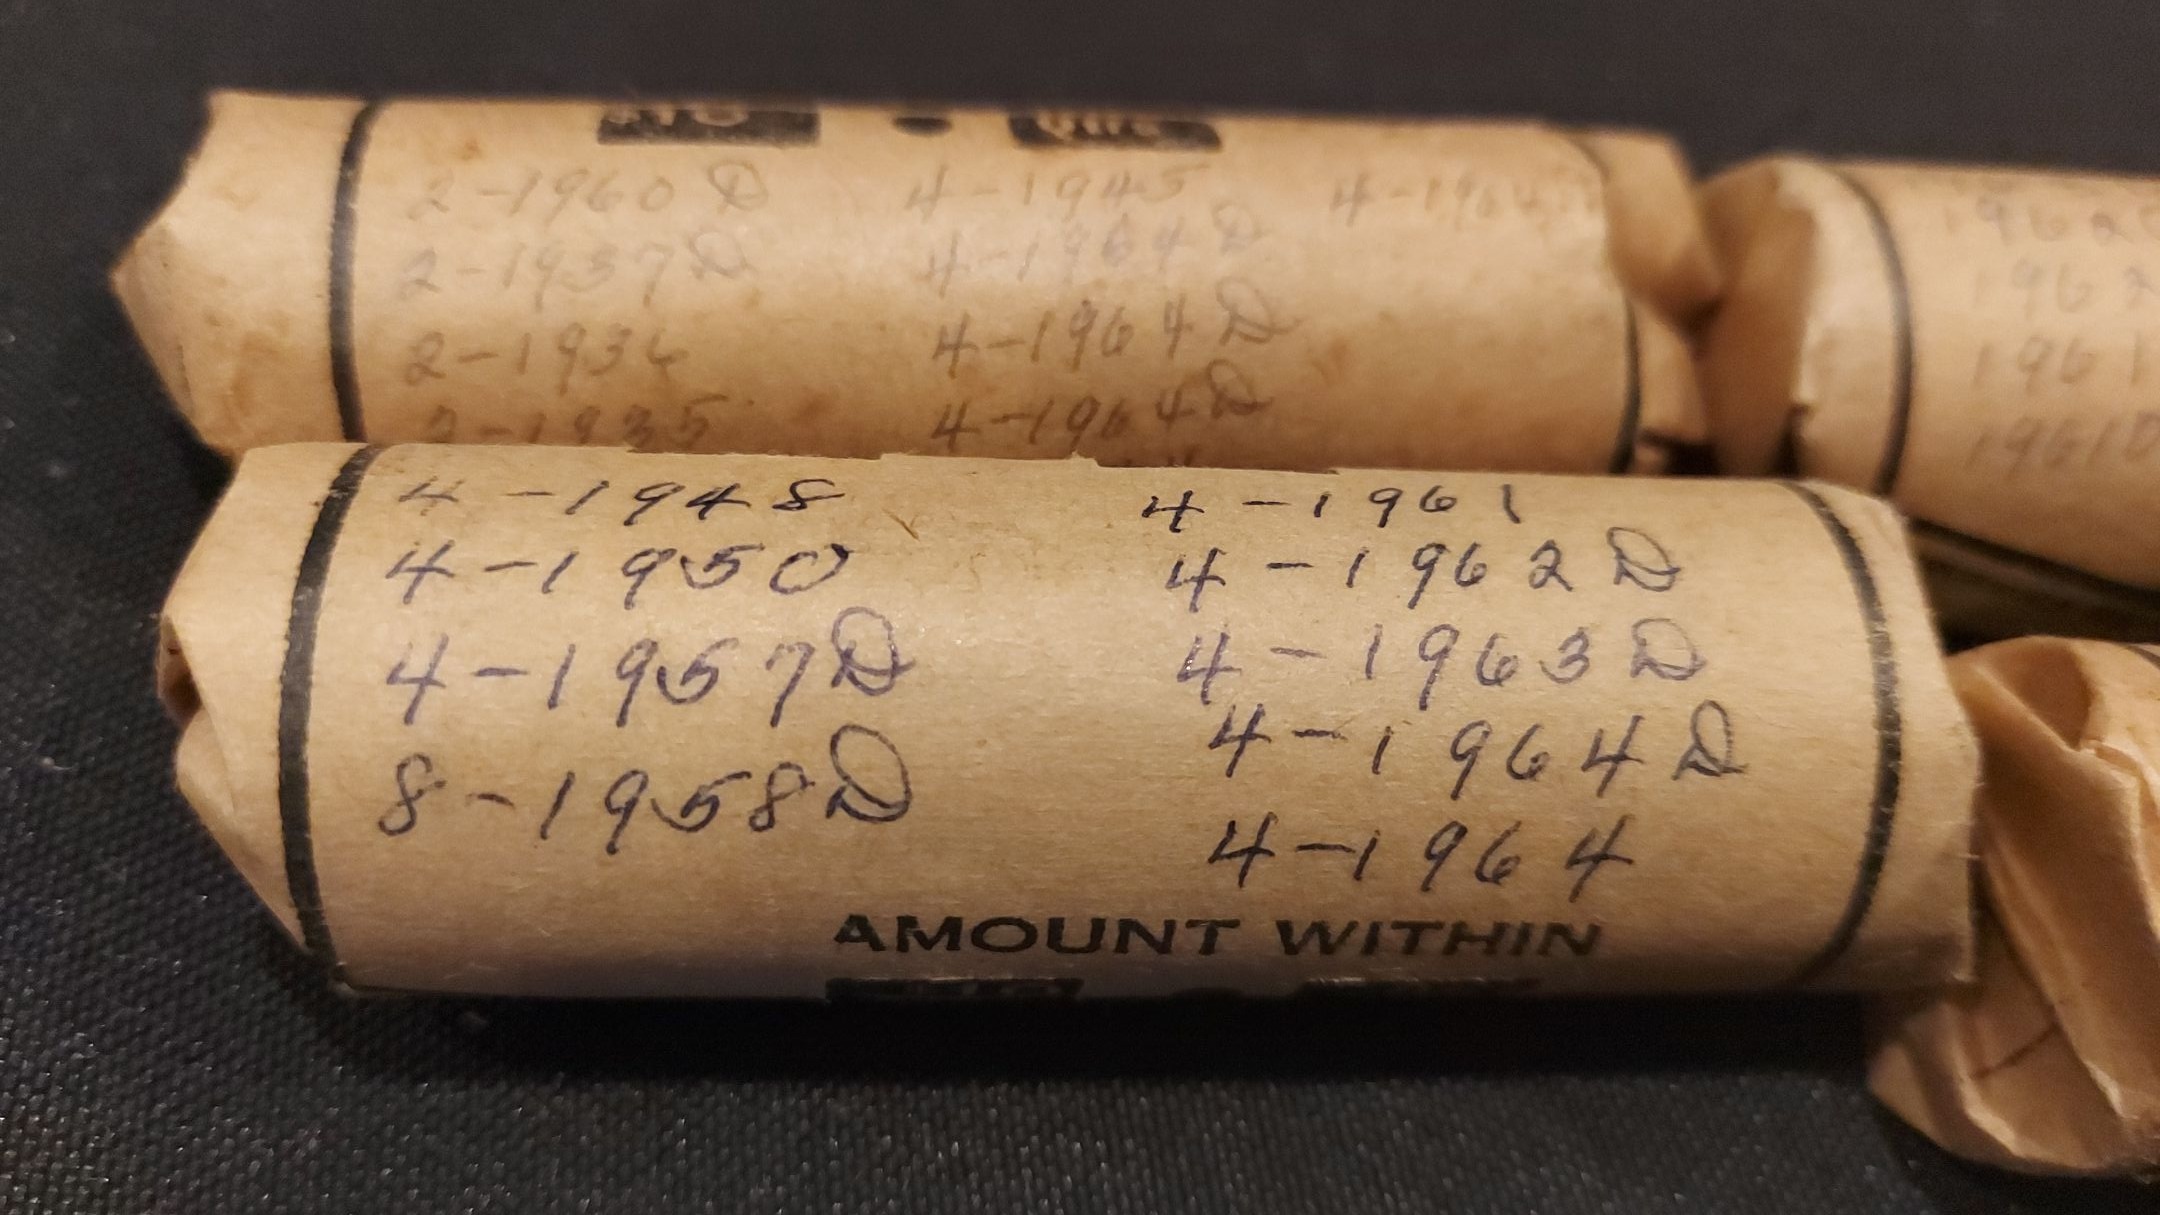 2-1960 D
2-1937 D
2-1936
2-1935
4-1945
4-1964 D
4-1964 D
4-1964 D
4-1964
1962
1961
1961D
4-1948
4-1950
4-1957D
8-1958D
4-1961
4-1962 D
4-1963 D
4-1964 D
4-1964
AMOUNT WITHIN